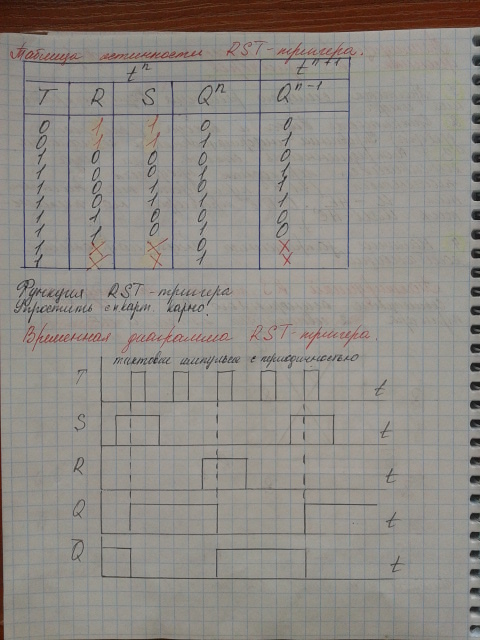 Таблица истинности RST-тригера.
tⁿ tⁿ⁺¹
T R S Qⁿ Qⁿ⁻¹
0 1 1 0 0
0 1 1 1 1
1 0 0 0 0
1 0 0 1 1
1 0 1 0 1
1 0 1 1 1
1 1 0 0 0
1 1 0 1 0
1 X X 0 X
1 X X 1 X
Функция RST-тригера
Упростить с карт. карно.
Временная диаграмма RST-тригера.
тактовые импульсы с периодичностью
T t
S t
R t
Q t
Q̅ t